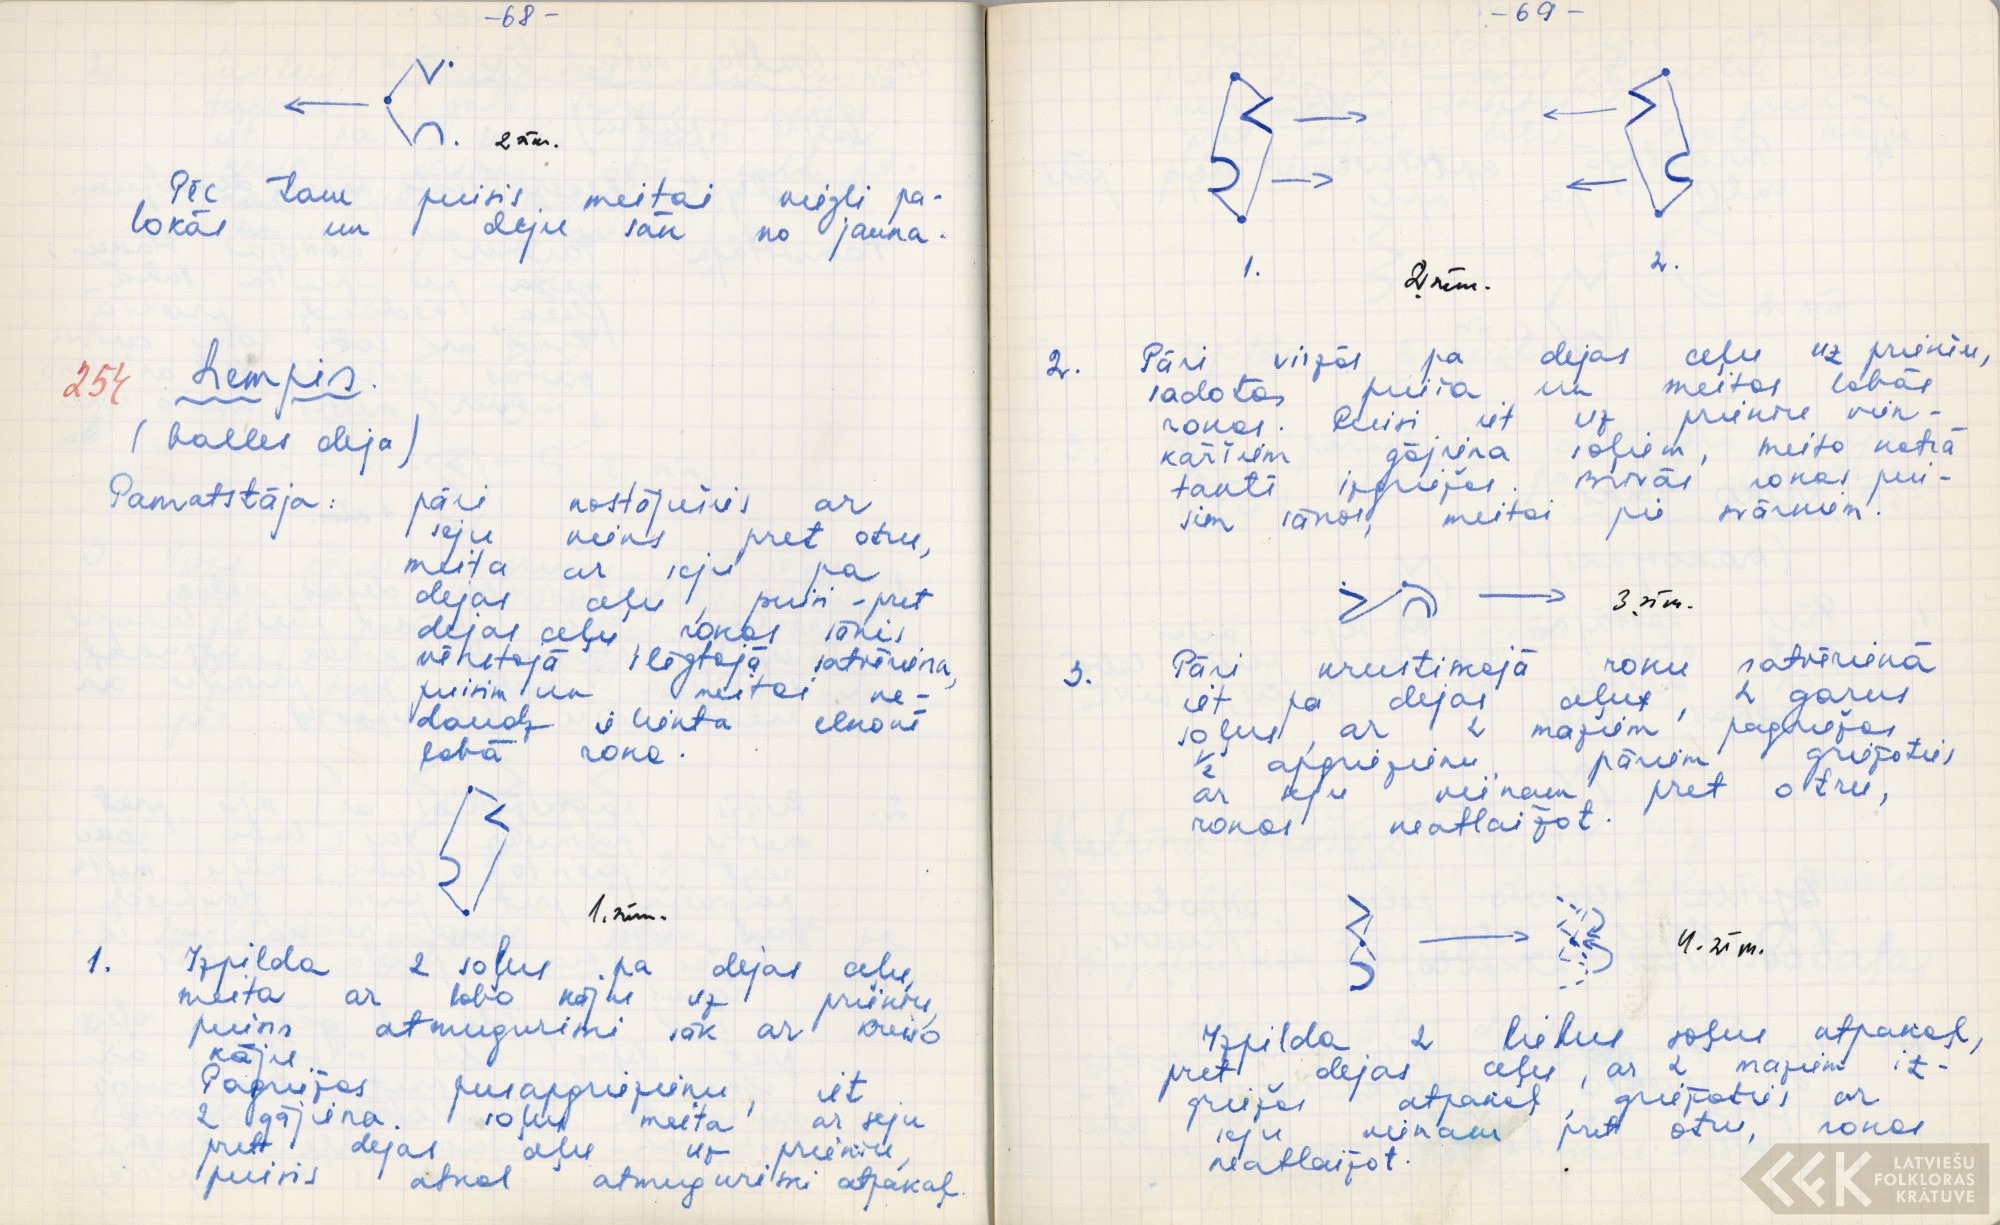 -68-
2 zīm.
Pēc tam puisis meitai viegli pa-
lokās un deju sāk no jauna.
254 Lempis.
(balles deja)
Pamatstāja: pāri nostājušies ar
seju viens pret otru,
meita ar seju pa
dejas ceļu, puisi - pret
dejas ceļu, rokas sānis
vērstajā slēgtajā satvērienā,
puisim un meitai ne-
daudz i liekta elkonī
labā roka.
1. zīm.
1. Izpilda 2 soļus pa dejas ceļu,
meita ar labo kāju uz priekšu,
puisis atmuguriski sāk ar kreiso
kāju
Pagriežas pusapgriezienu, iet
2 gājiena soļus meita ar seju
pret dejas ceļu uz priekšu,
puisis atkal atmuguriski atpakaļ.
-69-
1. 2.
2. zīm.
2. Pāri virzās pa dejas ceļu uz priekšu,
sadotas puiša un meitas labās
rokas. Puisi iet uz priekšu vien-
kāršiem gājiena soļiem, meita katrā
taktī izgriežas. Brīvās rokas pui-
sim sānos, meitai pie svārkiem.
3. zīm.
3. Pāri krustiskajā roku satvērienā
iet pa dejas ceļu, 2 garus
soļus, ar 2 maziem pagriežas
1/2 apgriezienu, pāriem griežoties
ar seju vienam pret otru,
rokas neatlaižot.
4. zīm.
Izpilda 2 lielus soļus atpakaļ,
pret dejas ceļu, ar 2 maziem iz-
griežas atpakaļ, griežoties ar
seju vienam pret otru, rokas
neatlaižot.
LATVIEŠU
FOLKLORAS
KRĀTUVE